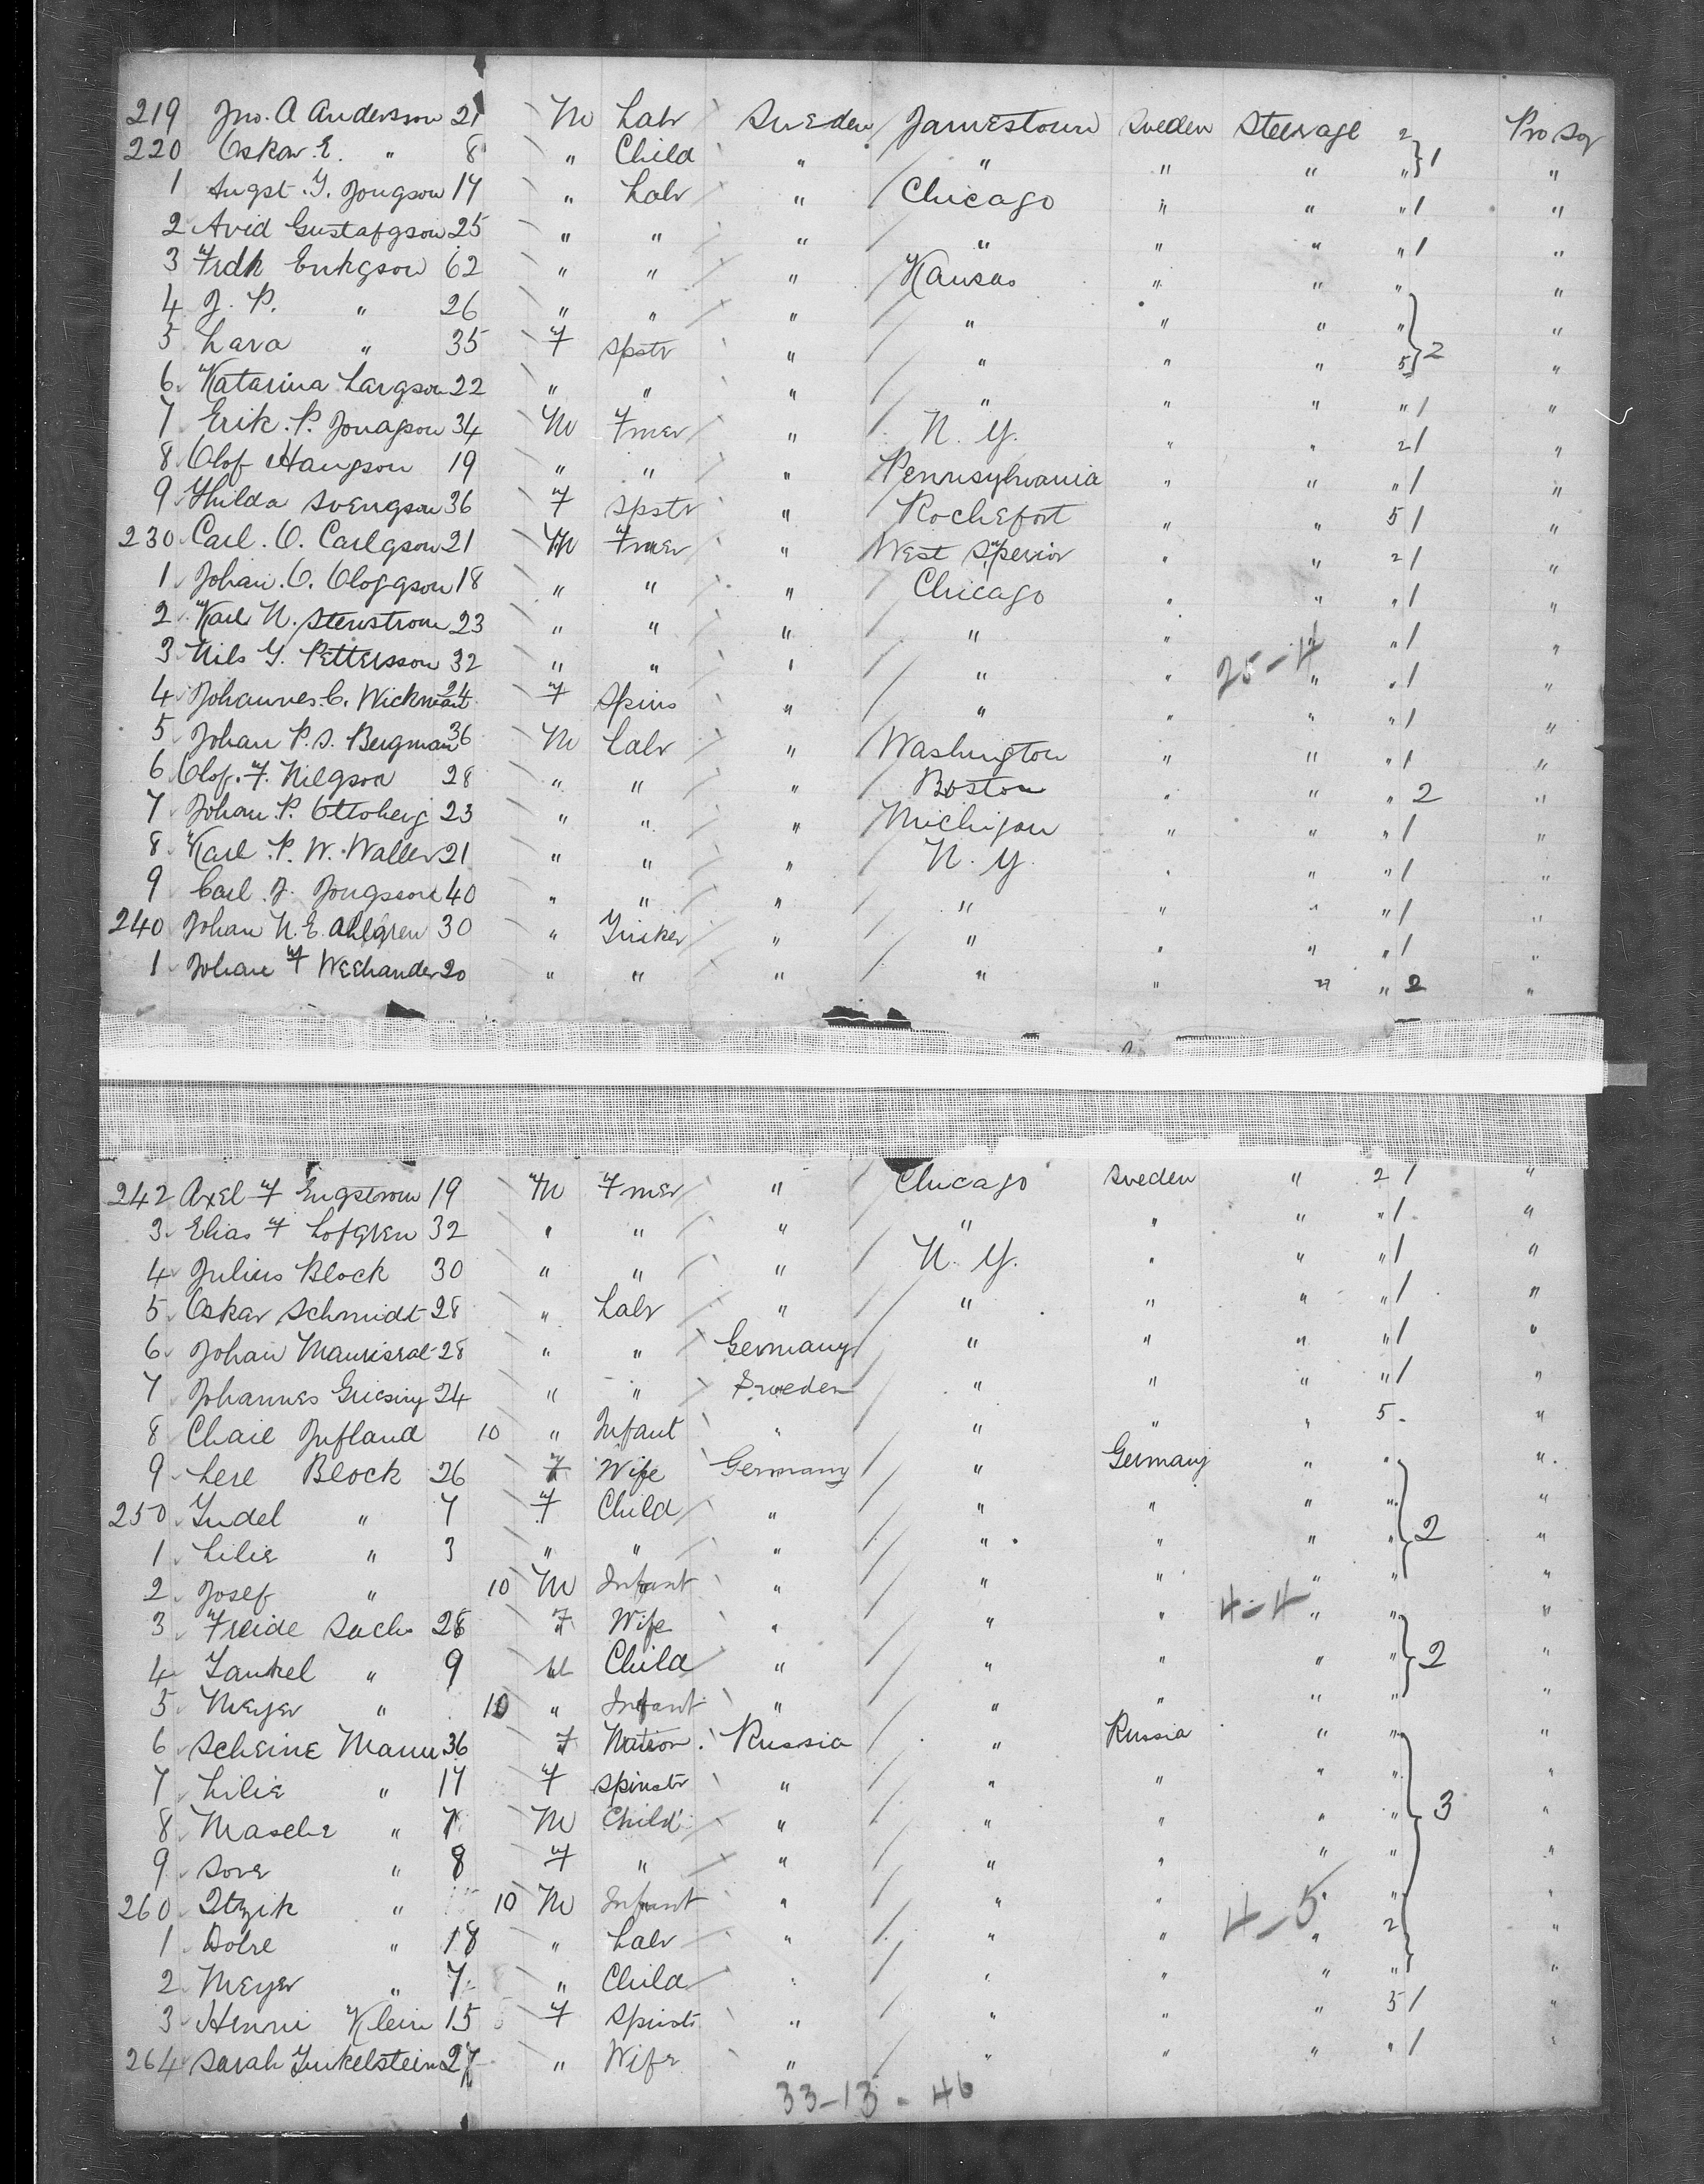 219 Jno. A Anderson 21 M Labr Sweden Jamestown Sweden Steerage 2 } 1 Pro Sg
220 Oskar E. " 8 " Child " " " " " "
1 Augst. G. Jongson 17 " Labr " Chicago " " " 1 "
2 Avid Gustafgson 25 " " " " " " " 1 "
3 Fredk Erikgson 62 " " " Kansas " " " "
4 J. P. " 26 " " " " " " " } 2 "
5 Lara " 35 F Spstr " " " " 5 "
6 Katarina Largson 22 " " " " " " " 1 "
7 Erik. P. Jonagson 34 M Fmer " N. Y. " " 2 1 "
8 Olof Hangson 19 " " " Pennsylvania " " " 1 "
9 Hilda Svengson 36 F Spstr " Rochefort " " 5 1 "
230 Carl. O. Carlgson 21 M Fmer " West Sperior " " 2 1 "
1 Johan. O. Olofgson 18 " " " Chicago " " " 1 "
2 Karl N. Stenstrom 23 " " " " " " " 1 "
3 Nils G. Pettersson 32 " " " " " 25-4 " " 1 "
4 Johannes. C. 24 F Spins " " " " " 1 "
5 Johan P. S. Bergman 36 M Labr " Washington " " " 1 "
6 Olof. F. Nilgson 28 " " " Boston " " " 2 "
7 Johan. P. Ottoberg 23 " " " Michigan " " " 1 "
8 Karl. P. W. Waller 21 " " " N. Y. " " " 1 "
9 Carl. J. Jongsson 40 " " " " " " " 1 "
240 Johan N. E. Ahlgren 30 " " " " " " 1 "
1 Johan F 20 " " " " " " " 2 "
242 Axel F Engstrom 19 M Fmer " Chicago Sweden " 2 1 "
3 Elias F Lofgren 32 " " " " " " " 1 "
4 Julius Block 30 " " " N. Y. " " " 1 "
5 Oskar Schmidt 28 " Labr " " " " " 1 "
6 Johan 28 " " Germany " " " " 1 "
7 Johannes 24 " " Sweden " " " " 1 "
8 Chaie Jufland 10 " Infant " " " " 5 - "
9 Lere Block 26 F Wife Germany " Germany " " "
250 Judel " 7 F Child " " " " " } 2 "
1 Lilie " 3 " " " " " " " "
2 Josef " 10 M Infant " " " " " "
3 Freide Sachs 28 F Wife " " " 4-4 " " "
4 Jankel " 9 M Child " " " " " } 2 "
5 Meyer " 10 " Infant " " " " " "
6 Scheine Mann 36 F Matron Russia " Russia " " "
7 Lilie " 17 F Spinstr " " " " " "
8 Masche " 7 M Child " " " " " } 3 "
9 Sore " 8 F " " " " " " "
260 Itzik " 10 M Infant " " " 4-5 " " "
1 Dobre " 18 " Labr " " " " 2 "
2 Meyer " 7 " Child " " " " " "
3 Henni Klein 15 F Spinstr " " " " 5 1 "
264 Sarah Finkelstein 27 " Wife " " " " " 1 "
33-13-46